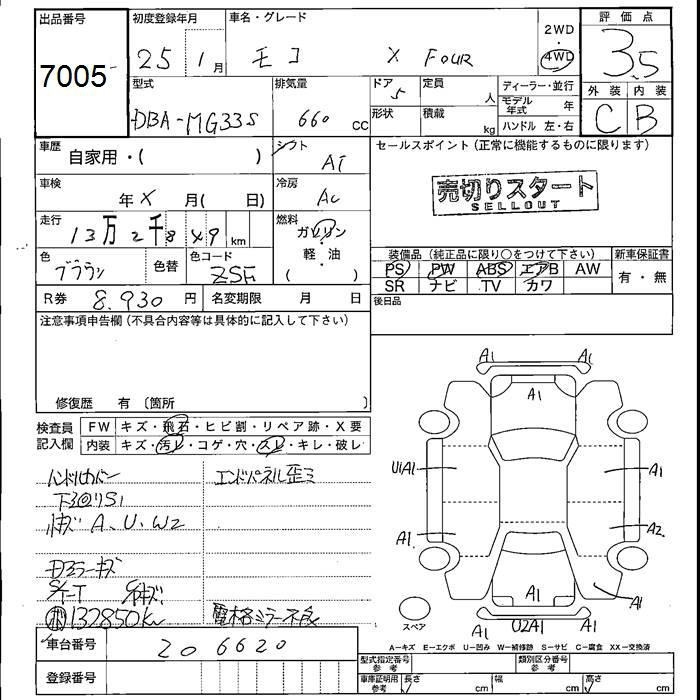 出品番号 初度登録年月 車名・グレード 2WD 評価点
7005 25 1月 モコ X FOUR 4WD 3.5
型式 排気量 ドア 5 定員 人 ディーラー・並行 外装 内装
DBA-MG33S 660 CC 形状 積載 kg モデル年式 年 C B
ハンドル 左・右
車歴 自家用・( ) シフト AT セールスポイント(正常に機能するものに限ります)
車検 年 X 月( 日) 冷房 AC 売切りスタート
SELLOUT
走行 13万2千849 km 燃料 ガソリン
軽・油
( )
装備品(純正品に限り○をつけて下さい) 新車保証書
色 ブラウン 色替 色コード ZSH PS PW ABS エアB AW 有・無
SR ナビ TV カワ
R券 8,930円 名変期限 月 日 後日品
注意事項申告欄(不具合内容等は具体的に記入して下さい)
修復歴 有 〔箇所 〕
検査員記入欄 FW キズ・飛石・ヒビ割・リペア跡・X要
内装 キズ・汚レ・コゲ・穴・スレ・キレ・破レ
ハンドルカバー エンドパネル歪ミ
A、U、W2
ドアミラーキズ
132850km 電格ミラー不良
A1 A1
A1
U1A1 A1
A1 A2
A1 A1
A1 U2A1 A1
スペア
A－キズ E－エクボ U－凹み W－補修跡 S－サビ C－腐食 XX－交換済
車台番号 206620
型式指定番号 参考 類別区分番号 参考
登録番号 車庫証明用 参考 長さ cm 幅 cm 高さ cm